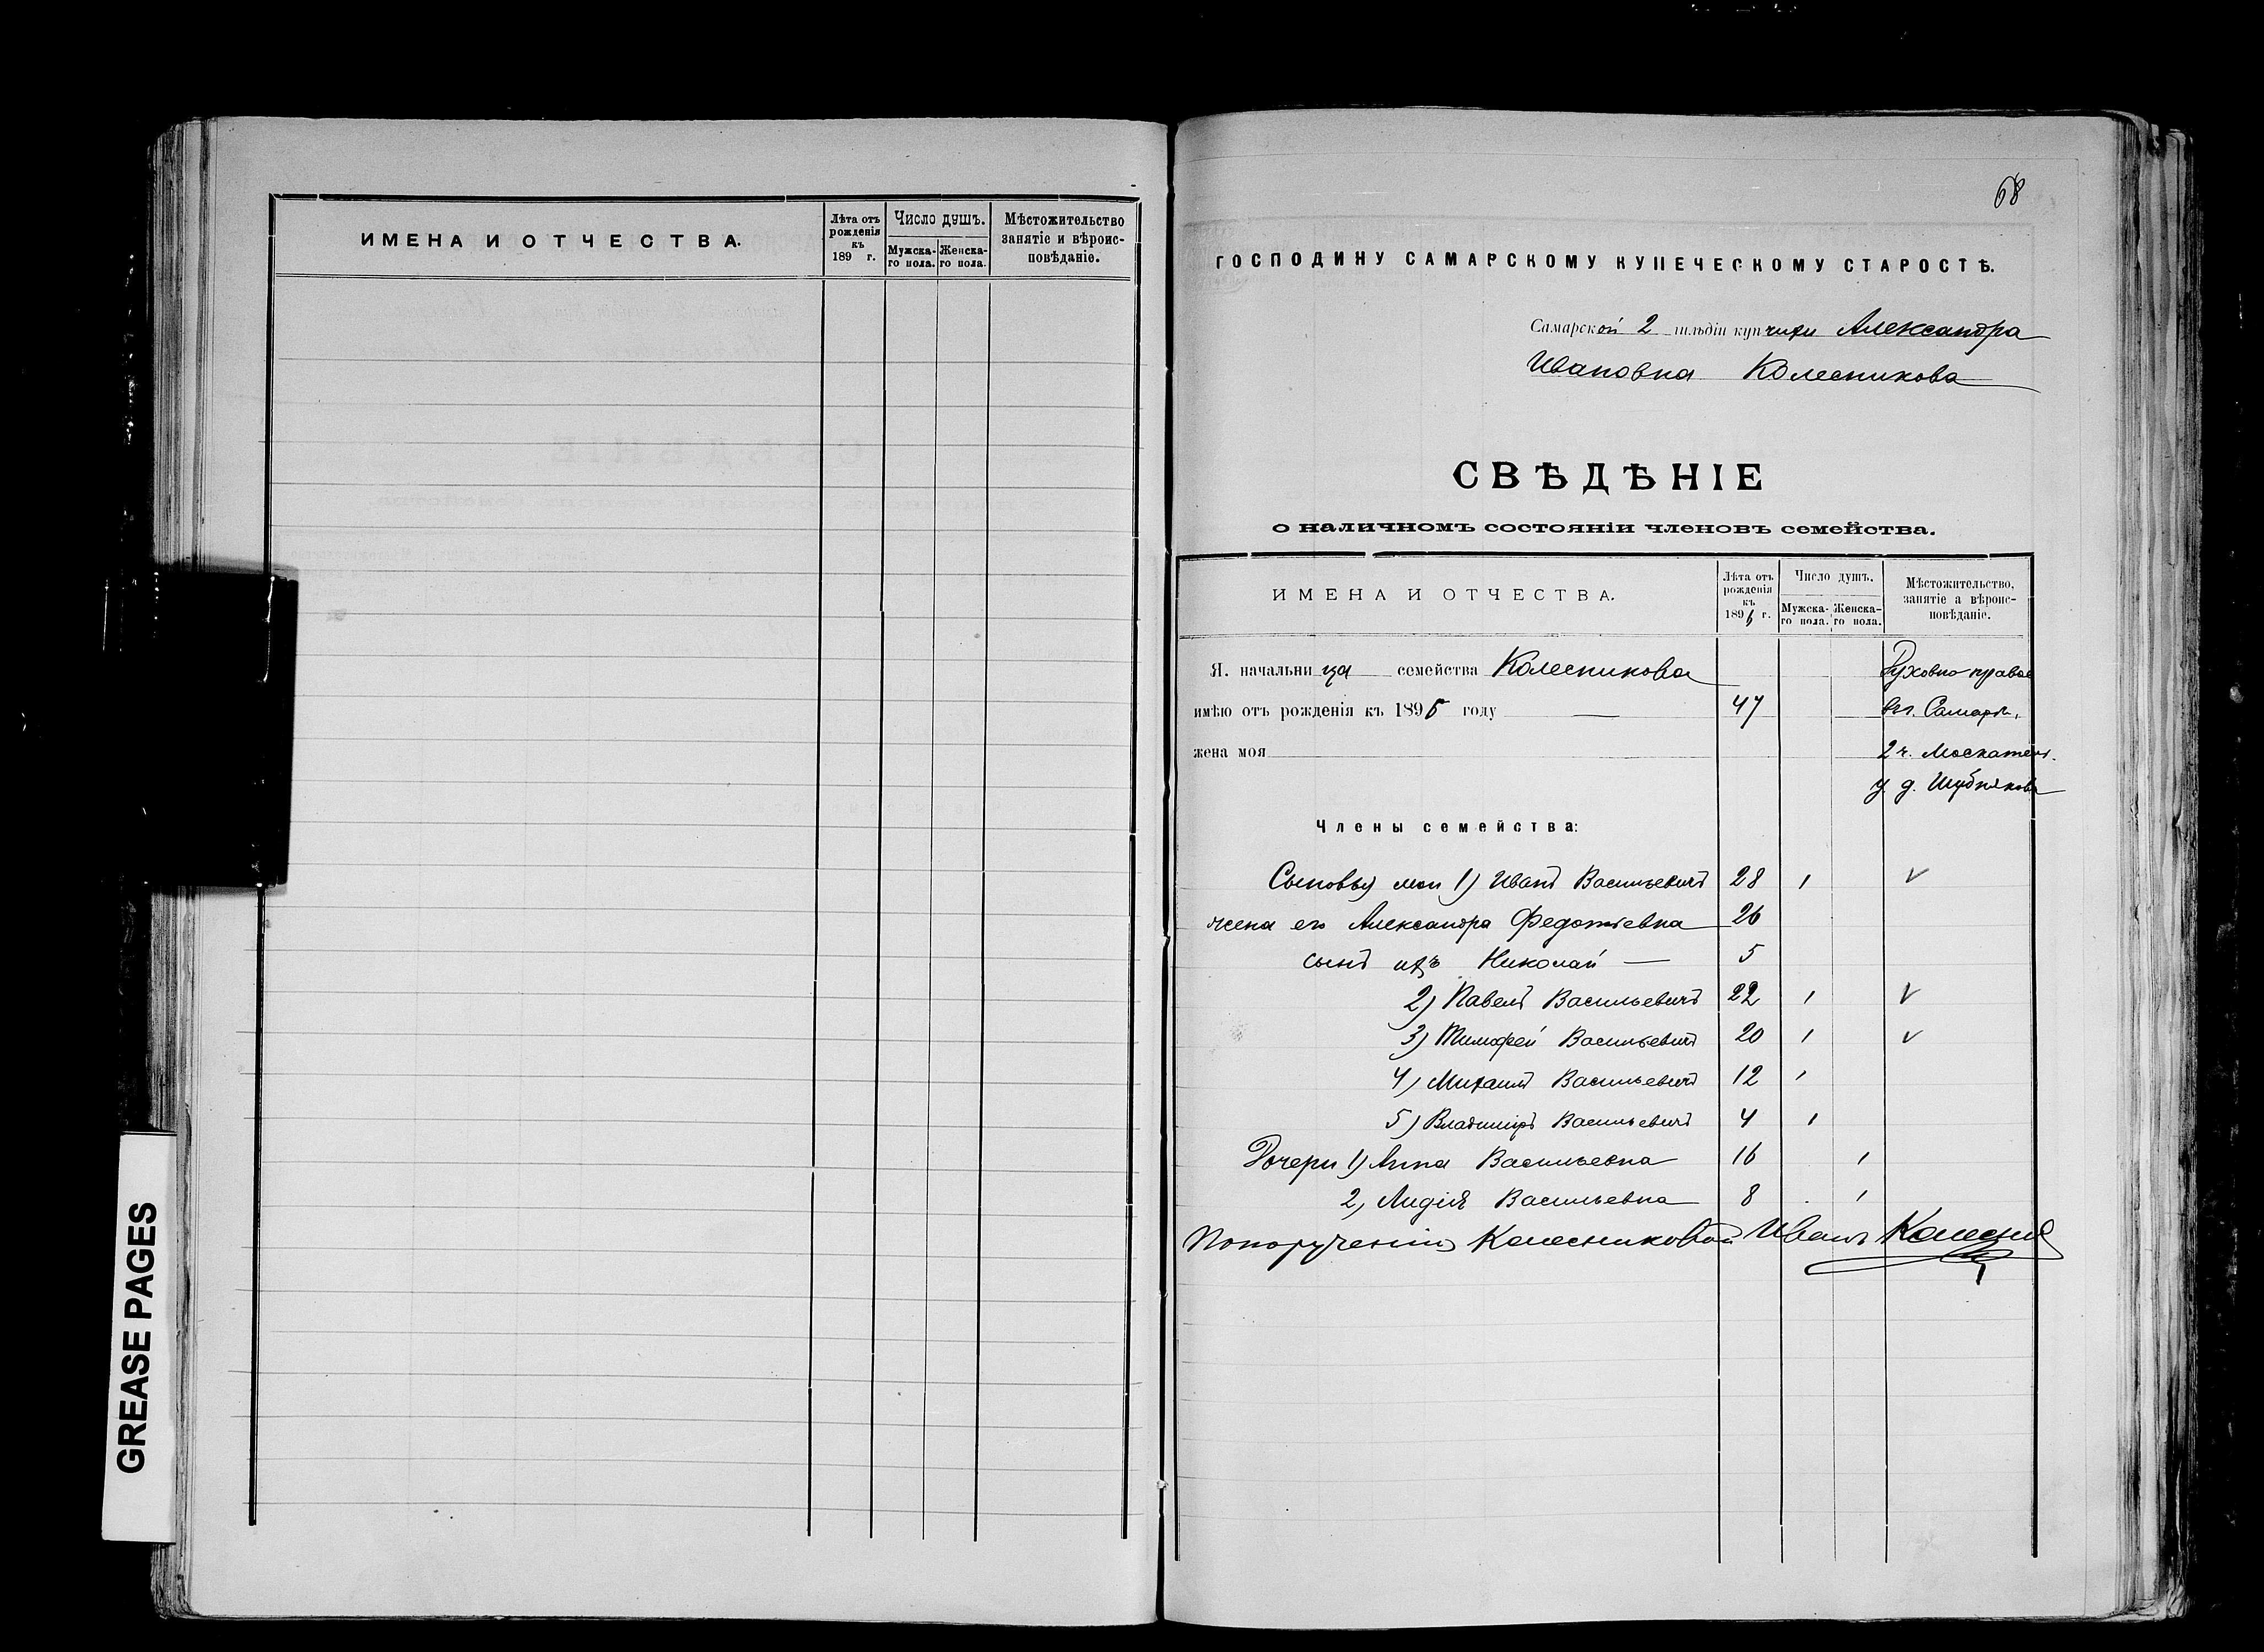 ИМЕНА И ОТЧЕСТВА.
Лѣта отъ рожденія къ 189 г.
Число душъ.
Мужска-го пола.
Женска-го пола.
Мѣстожительство занятіе и вѣроис-повѣданіе.
GREASE PAGES
68
ГОСПОДИНУ САМАРСКОМУ КУПЕЧЕСКОМУ СТАРОСТѢ.
Самарской 2 гильдіи купчихи Александра
Ивановна Колесникова
СВѢДѢНІЕ
о наличномъ состояніи членовъ семейства.
ИМЕНА И ОТЧЕСТВА.
Лѣта отъ рожденія къ 1895 г.
Число душъ.
Мужска-го пола.
Женска-го пола.
Мѣстожительство, занятіе а вѣроис-повѣданіе.
Я. начальница семейства Колесникова
имѣю отъ рожденія къ 1895 году — 47 вг. Самарѣ,
жена моя 2 ч. Москател.
у д. Шубникова
Члены семейства:
Сыновья мои 1) Иванъ Васильевичъ 28 1 V
жена его Александра Федотьевна 26
сынъ ихъ Николай — 5
2) Павелъ Васильевичъ 22 1 V
3) Тимофей Васильевичъ 20 1 V
4) Михаилъ Васильевичъ 12 1
5) Владиміръ Васильевичъ 4 1
Дочери 1) Анна Васильевна 16 1
2, Лидія Васильевна 8 1
Попорученію Колесниковой Иванъ